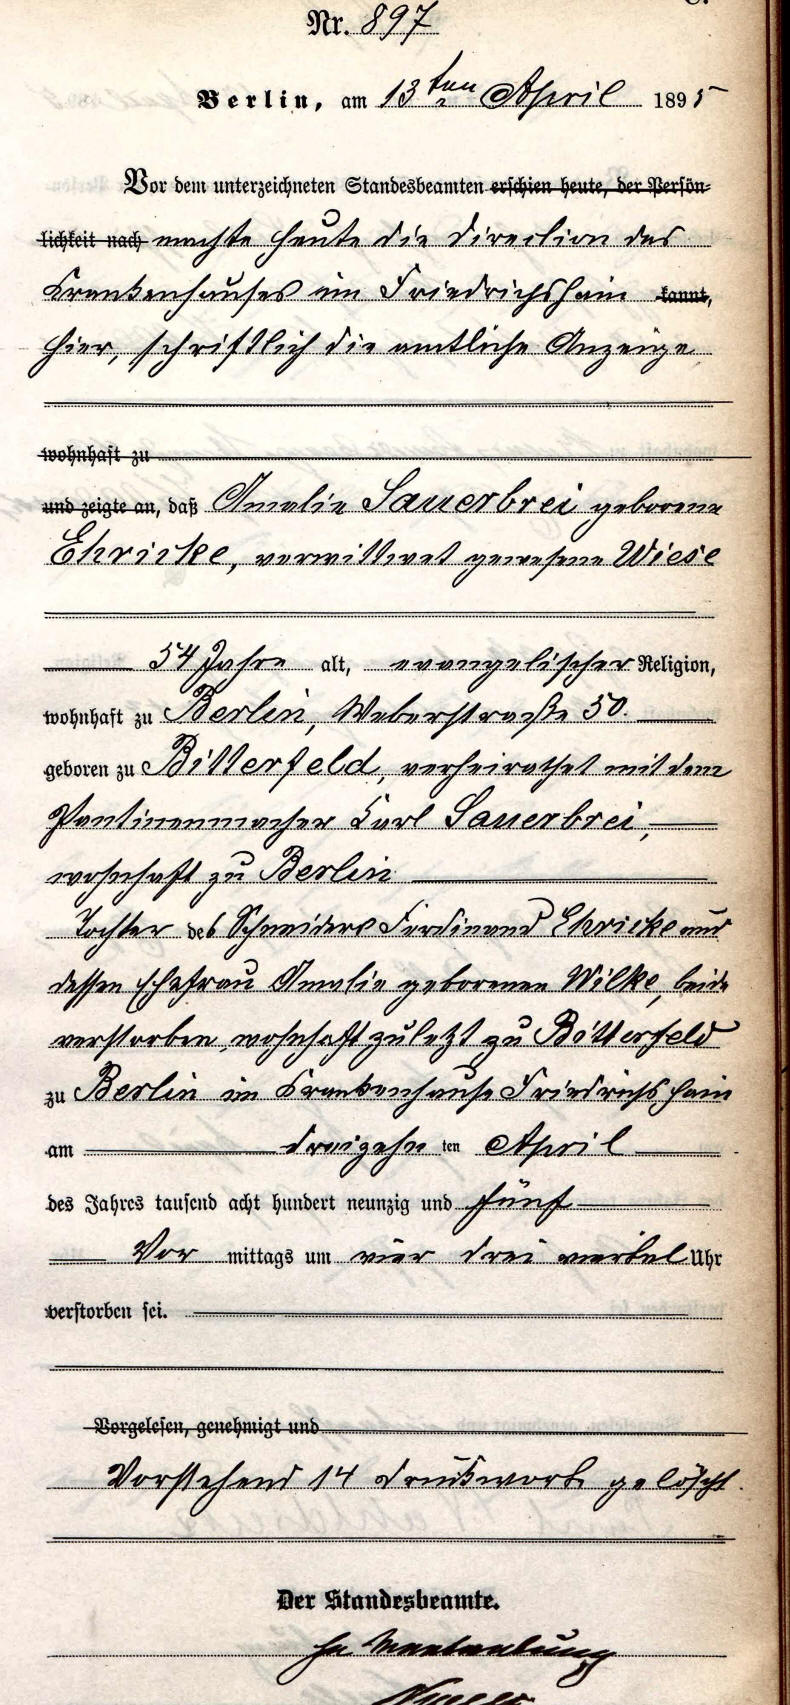 Nr. 897
Berlin, am 13ten April 1895
Vor dem unterzeichneten Standesbeamten erschien heute, der Persön-
lichkeit nach machte heute die Direction des
Krankenhauses im Friedrichshain kannt,
hier, schriftlich die amtliche Anzeige
wohnhaft zu
und zeigte an, daß Amalie Sauerbrei geborene
Ehricke, verwittwet gewesene Wiese
54 Jahre alt, evangelischer Religion,
wohnhaft zu Berlin, Weberstraße 50.
geboren zu Bitterfeld, verheirathet mit dem
Pantinenmacher Karl Sauerbrei,
wohnhaft zu Berlin
Tochter des Schneiders Ferdinand Ehricke und
dessen Ehefrau Amalie geborenen Wilke, beide
verstorben, wohnhaft zuletzt zu Bitterfeld
zu Berlin im Krankenhause Friedrichshain
am dreizehn ten April
des Jahres tausend acht hundert neunzig und fünf
Vor mittags um vier drei viertel Uhr
verstorben sei.
Vorgelesen, genehmigt und
Vorstehend 14 Druckworte gelöscht.
Der Standesbeamte.
In Vertretung